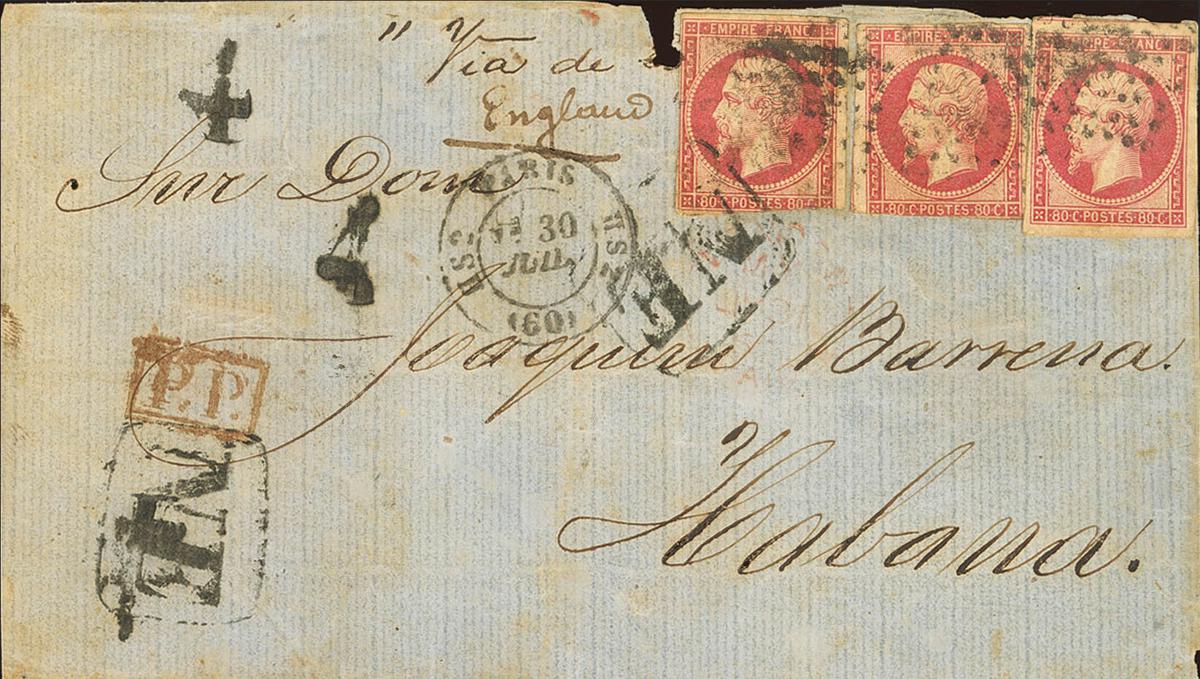 " Via de
England
Snr Dom
Joaquim Barrena.
Habana.
EMPIRE FRANC
80·C·POSTES·80·C·
EMPIRE FRANC
80·C·POSTES·80·C·
EMPIRE FRANC
80·C·POSTES·80·C·
PARIS
30
JUIL.
(60)
P.P.
NE
NE